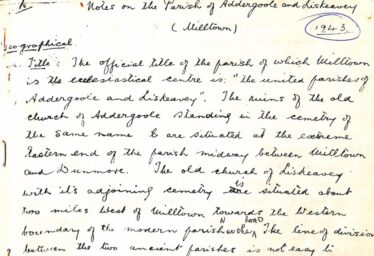 Notes on the Parish of Addergoole and Liskeavey
(Milltown)
1943.
Geographical.
Title: The official title of the parish of which Milltown
is the ecclesiastical centre is: "the united parishes of
Addergoole and Liskeavey". The ruins of the old
church of Addergoole standing in the cemetery of
the same name are situated at the extreme
Eastern end of the parish midway between Milltown
and Dunmore. The old church of Liskeavey
with it's adjoining cemetery is situated about
two miles West of Milltown towards the Western
boundary of the modern parish The line of division
between the two ancient parishes is not easy to